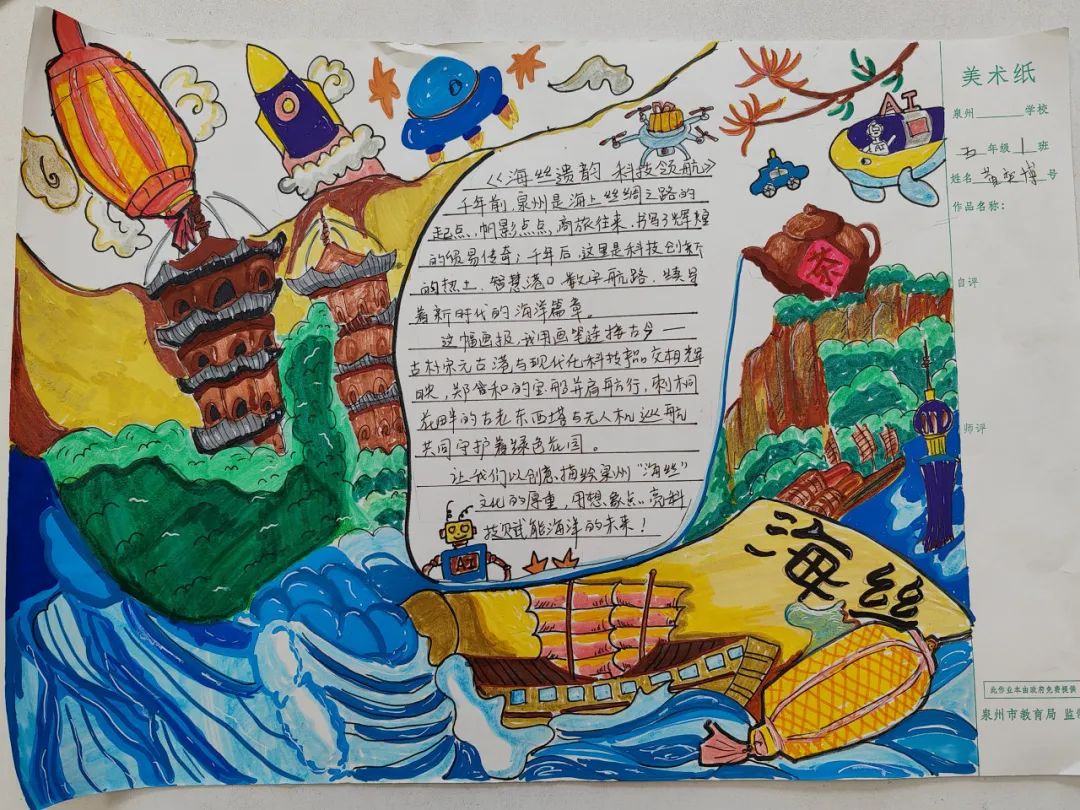 《海丝遗韵 科技领航》
千年前,泉州是海上丝绸之路的
起点、帆影点点,商旅往来、书写了辉煌
的贸易传奇;千年后,这里是科技创新
的热土、智慧港口、数字航路、续写
着新时代的海洋篇章。
这幅画报,我用画笔连接古今——
古朴宋元古港与现代化科技 交相辉
映,郑和的宝船并肩航行,刺桐
花畔的古老东西塔与无人机巡航
共同守护着绿色花园。
让我们以创意描绘泉州“海丝”
文化的厚重,用想象点亮科
技赋能海洋的未来!
AI
海丝
茶
AI
AI
美术纸
泉州 学校
五年级 1 班
姓名 号
作品名称:
自评
师评
此作业本由政府免费提供
泉州市教育局 监